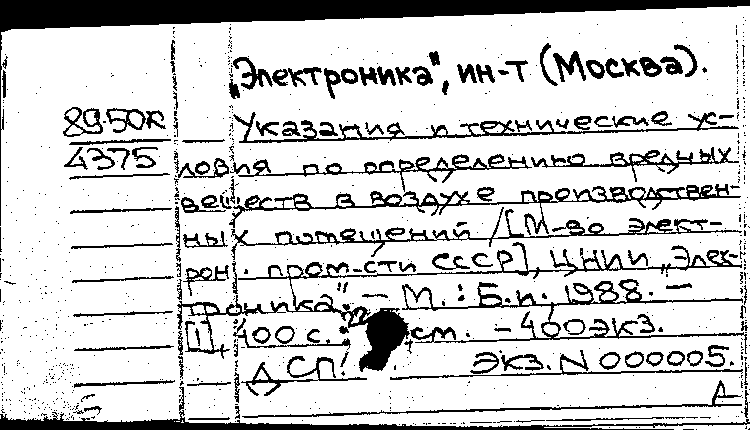 „Электроника", ин-т (Москва).
89-50К Указания и технические ус-
4375 ловия по определению вредных
веществ в воздухе производствен-
ных помещений /[М-во элект-
рон. пром-сти СССР], ЦНИИ „Элек-
троника". — М.: Б.и., 1988. —
[1], 400 с.: 22 см. - 400экз.
ДСП! экз. N 000005.